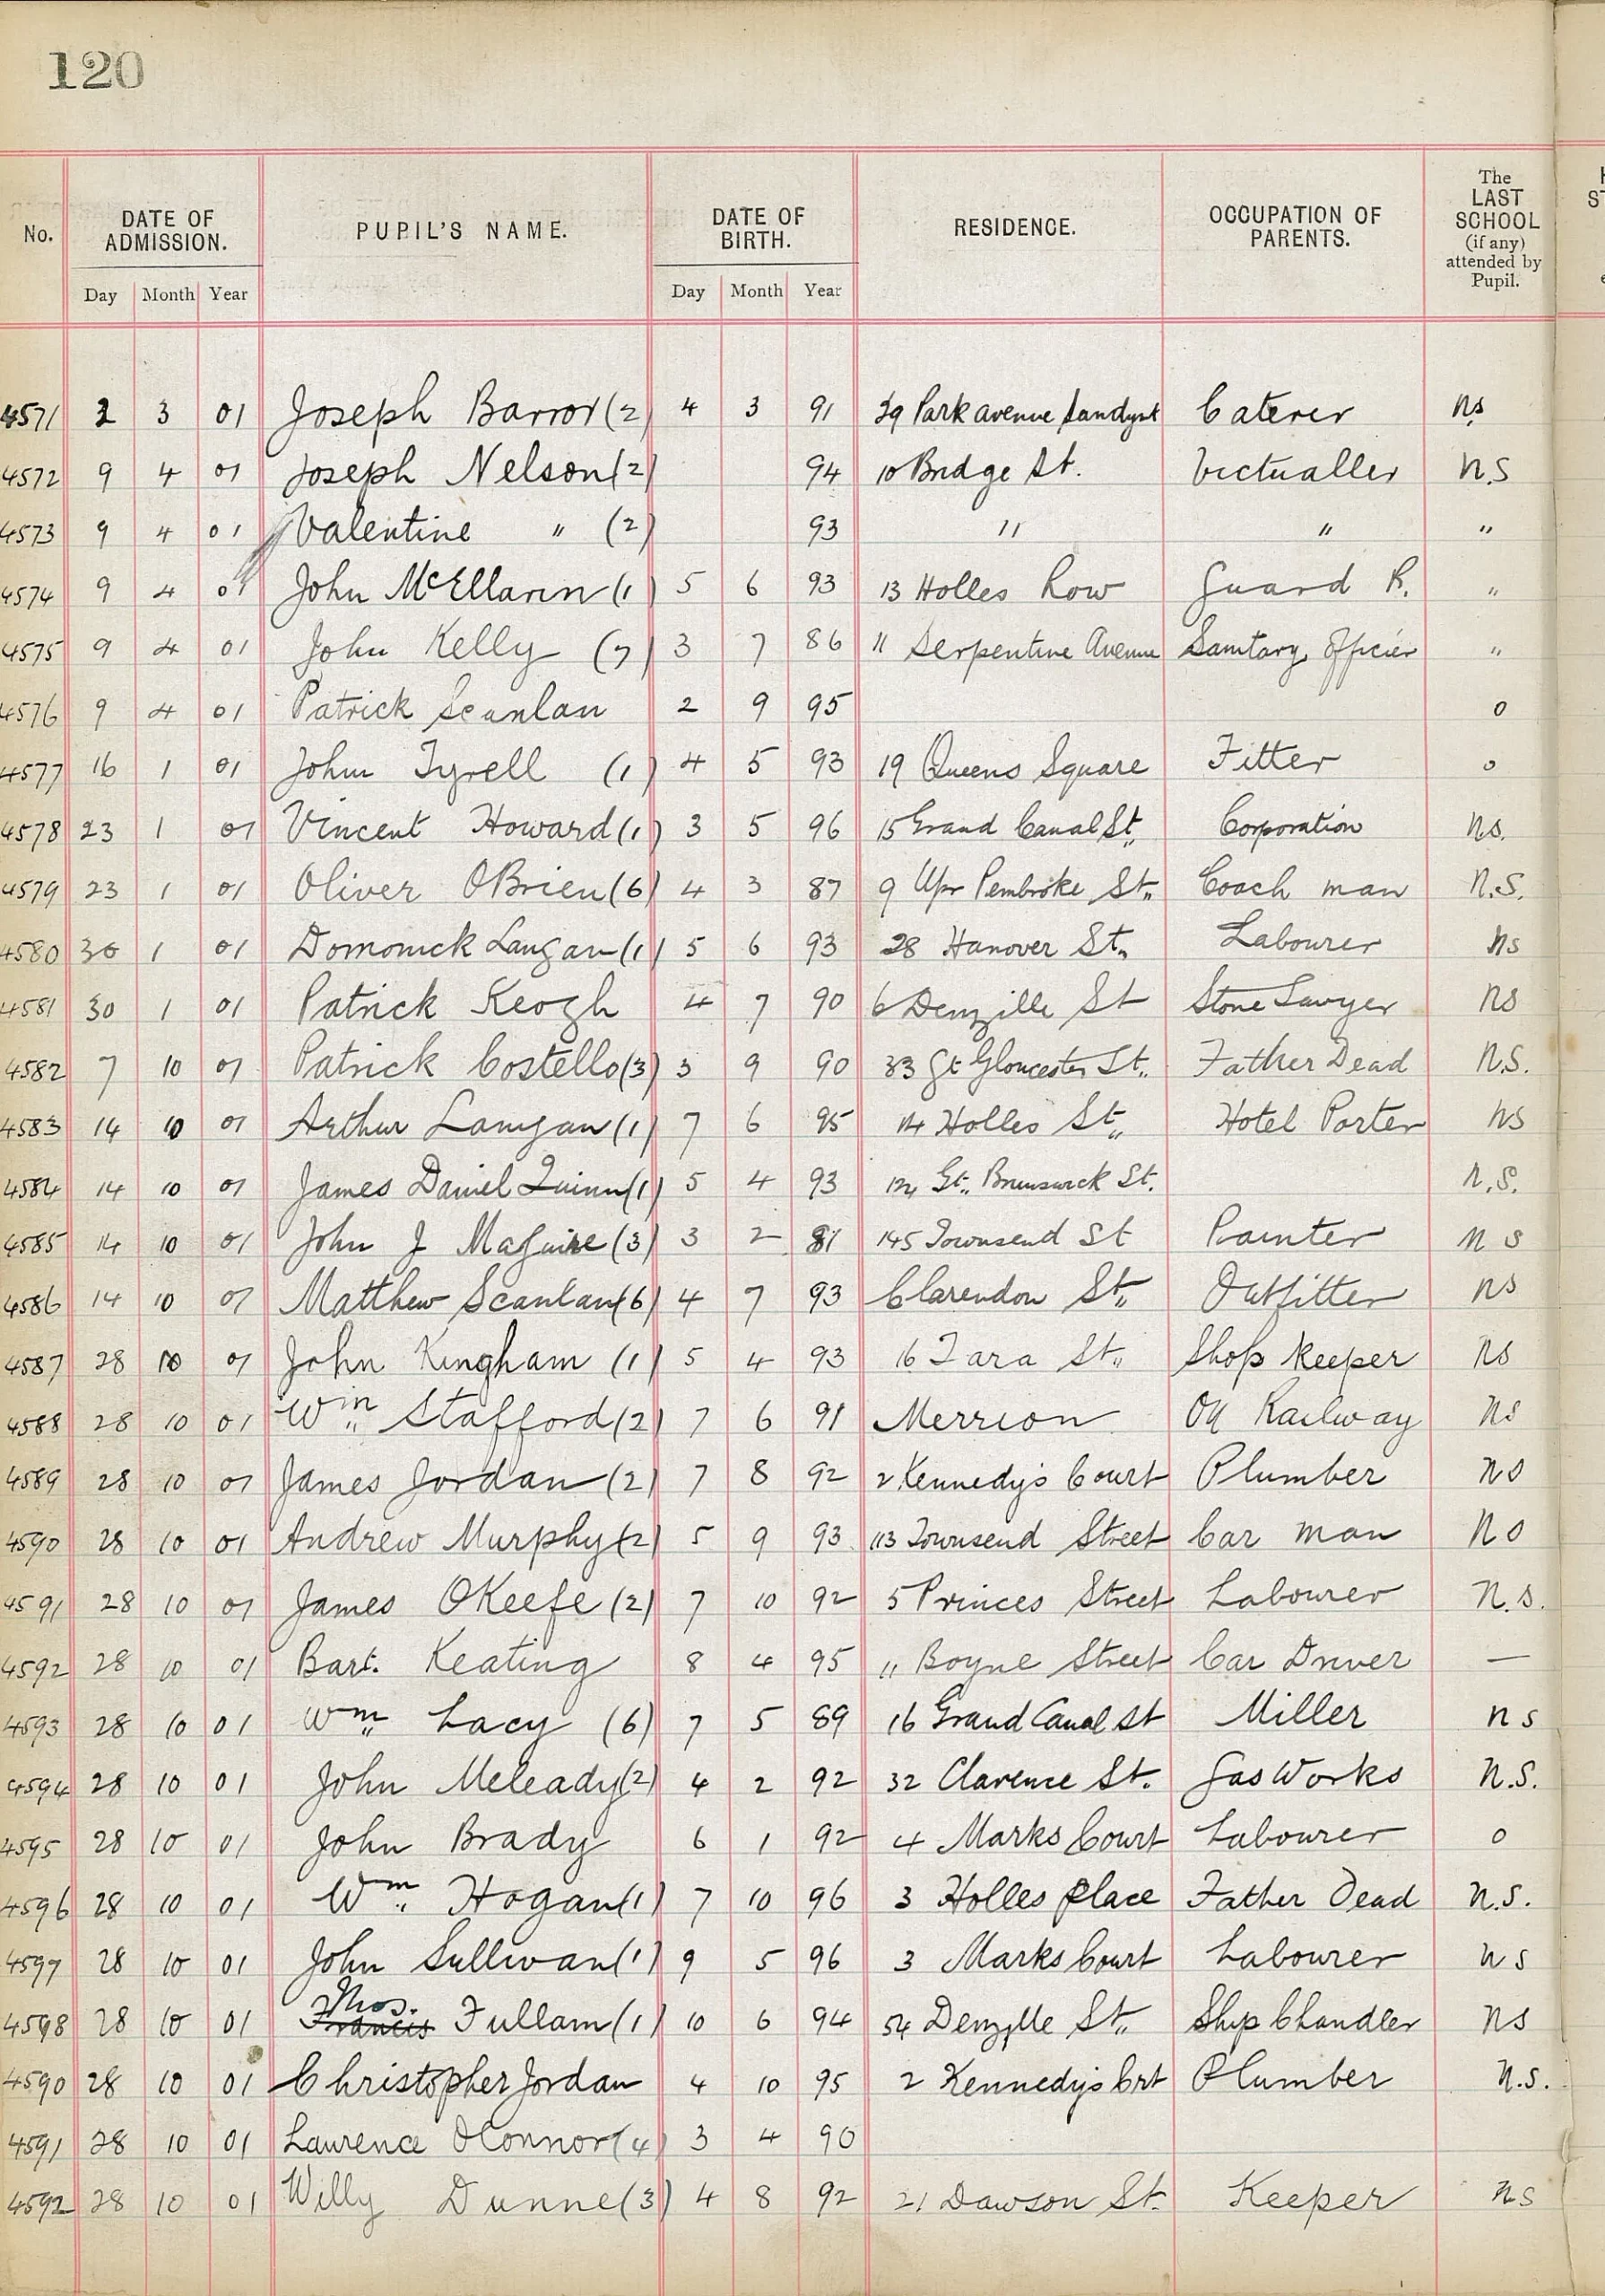 120
No. DATE OF ADMISSION. PUPIL'S NAME. DATE OF BIRTH. RESIDENCE. OCCUPATION OF PARENTS. The LAST SCHOOL (if any) attended by Pupil.
Day Month Year Day Month Year
4571 2 3 01 Joseph Barror (2) 4 3 91 29 Park avenue Sandymt Caterer ns
4572 9 4 01 Joseph Nelson (2) 94 10 Bridge St. Victualler N.S
4573 9 4 01 Valentine " (2) 93 " " "
4574 9 4 01 John McEllarin (1) 5 6 93 13 Holles Row Guard R. "
4575 9 4 01 John Kelly (7) 3 7 86 11 Serpentine Avenue Sanitary Officier "
4576 9 4 01 Patrick Scanlan 2 9 95 o
4577 16 1 01 John Tyrell (1) 4 5 93 19 Queens Square Fitter o
4578 23 1 01 Vincent Howard (1) 3 5 96 15 Grand Canal St. Corporation Ns.
4579 23 1 01 Oliver OBrien (6) 4 3 87 9 Upr Pembroke St. Coach man N.S.
4580 30 1 01 Domonick Langan (1) 5 6 93 28 Hanover St. Labourer Ns
4581 30 1 01 Patrick Keogh 4 7 90 6 Denzille St Stone Sawyer NS
4582 7 10 01 Patrick Costello (3) 3 9 90 33 Gt Gloucester St. Father Dead N.S.
4583 14 10 01 Arthur Lanigan (1) 7 6 95 14 Holles St. Hotel Porter NS
4584 14 10 01 James Daniel Quinn (1) 5 4 93 124 Gt. Brunswick St. N.S.
4585 14 10 01 John J Maguire (3) 3 2 81 145 Townsend St Painter N S
4586 14 10 01 Matthew Scanlan (6) 4 7 93 Clarendon St. Outfitter NS
4587 28 10 01 John Kingham (1) 5 4 93 16 Tara St. Shop Keeper Ns
4588 28 10 01 Wm Stafford (2) 7 6 91 Merrion On Railway Ns
4589 28 10 01 James Jordan (2) 7 8 92 2 Kennedy's Court Plumber NS
4590 28 10 01 Andrew Murphy (2) 5 9 93 113 Townsend Street Car man NS
4591 28 10 01 James OKeefe (2) 7 10 92 5 Princes Street Labourer N.S.
4592 28 10 01 Bart. Keating 8 4 95 11 Boyne Street Car Driver —
4593 28 10 01 Wm Lacy (6) 7 5 89 16 Grand Canal St Miller n s
4594 28 10 01 John Meleady (2) 4 2 92 32 Clarence St. Gas Works N.S.
4595 28 10 01 John Brady 6 1 92 4 Marks Court Labourer o
4596 28 10 01 Wm Hogan (1) 7 10 96 3 Holles Place Father Dead N.S.
4597 28 10 01 John Sullivan (1) 9 5 96 3 Marks Court Labourer N S
4598 28 10 01 Francis Thos. Fullam (1) 10 6 94 54 Denzille St. Ship Chandler NS
4590 28 10 01 Christopher Jordan 4 10 95 2 Kennedy's Crt Plumber N.S.
4591 28 10 01 Laurence OConnor (4) 3 4 90
4592 28 10 01 Willy Dunne (3) 4 8 92 21 Dawson St. Keeper NS